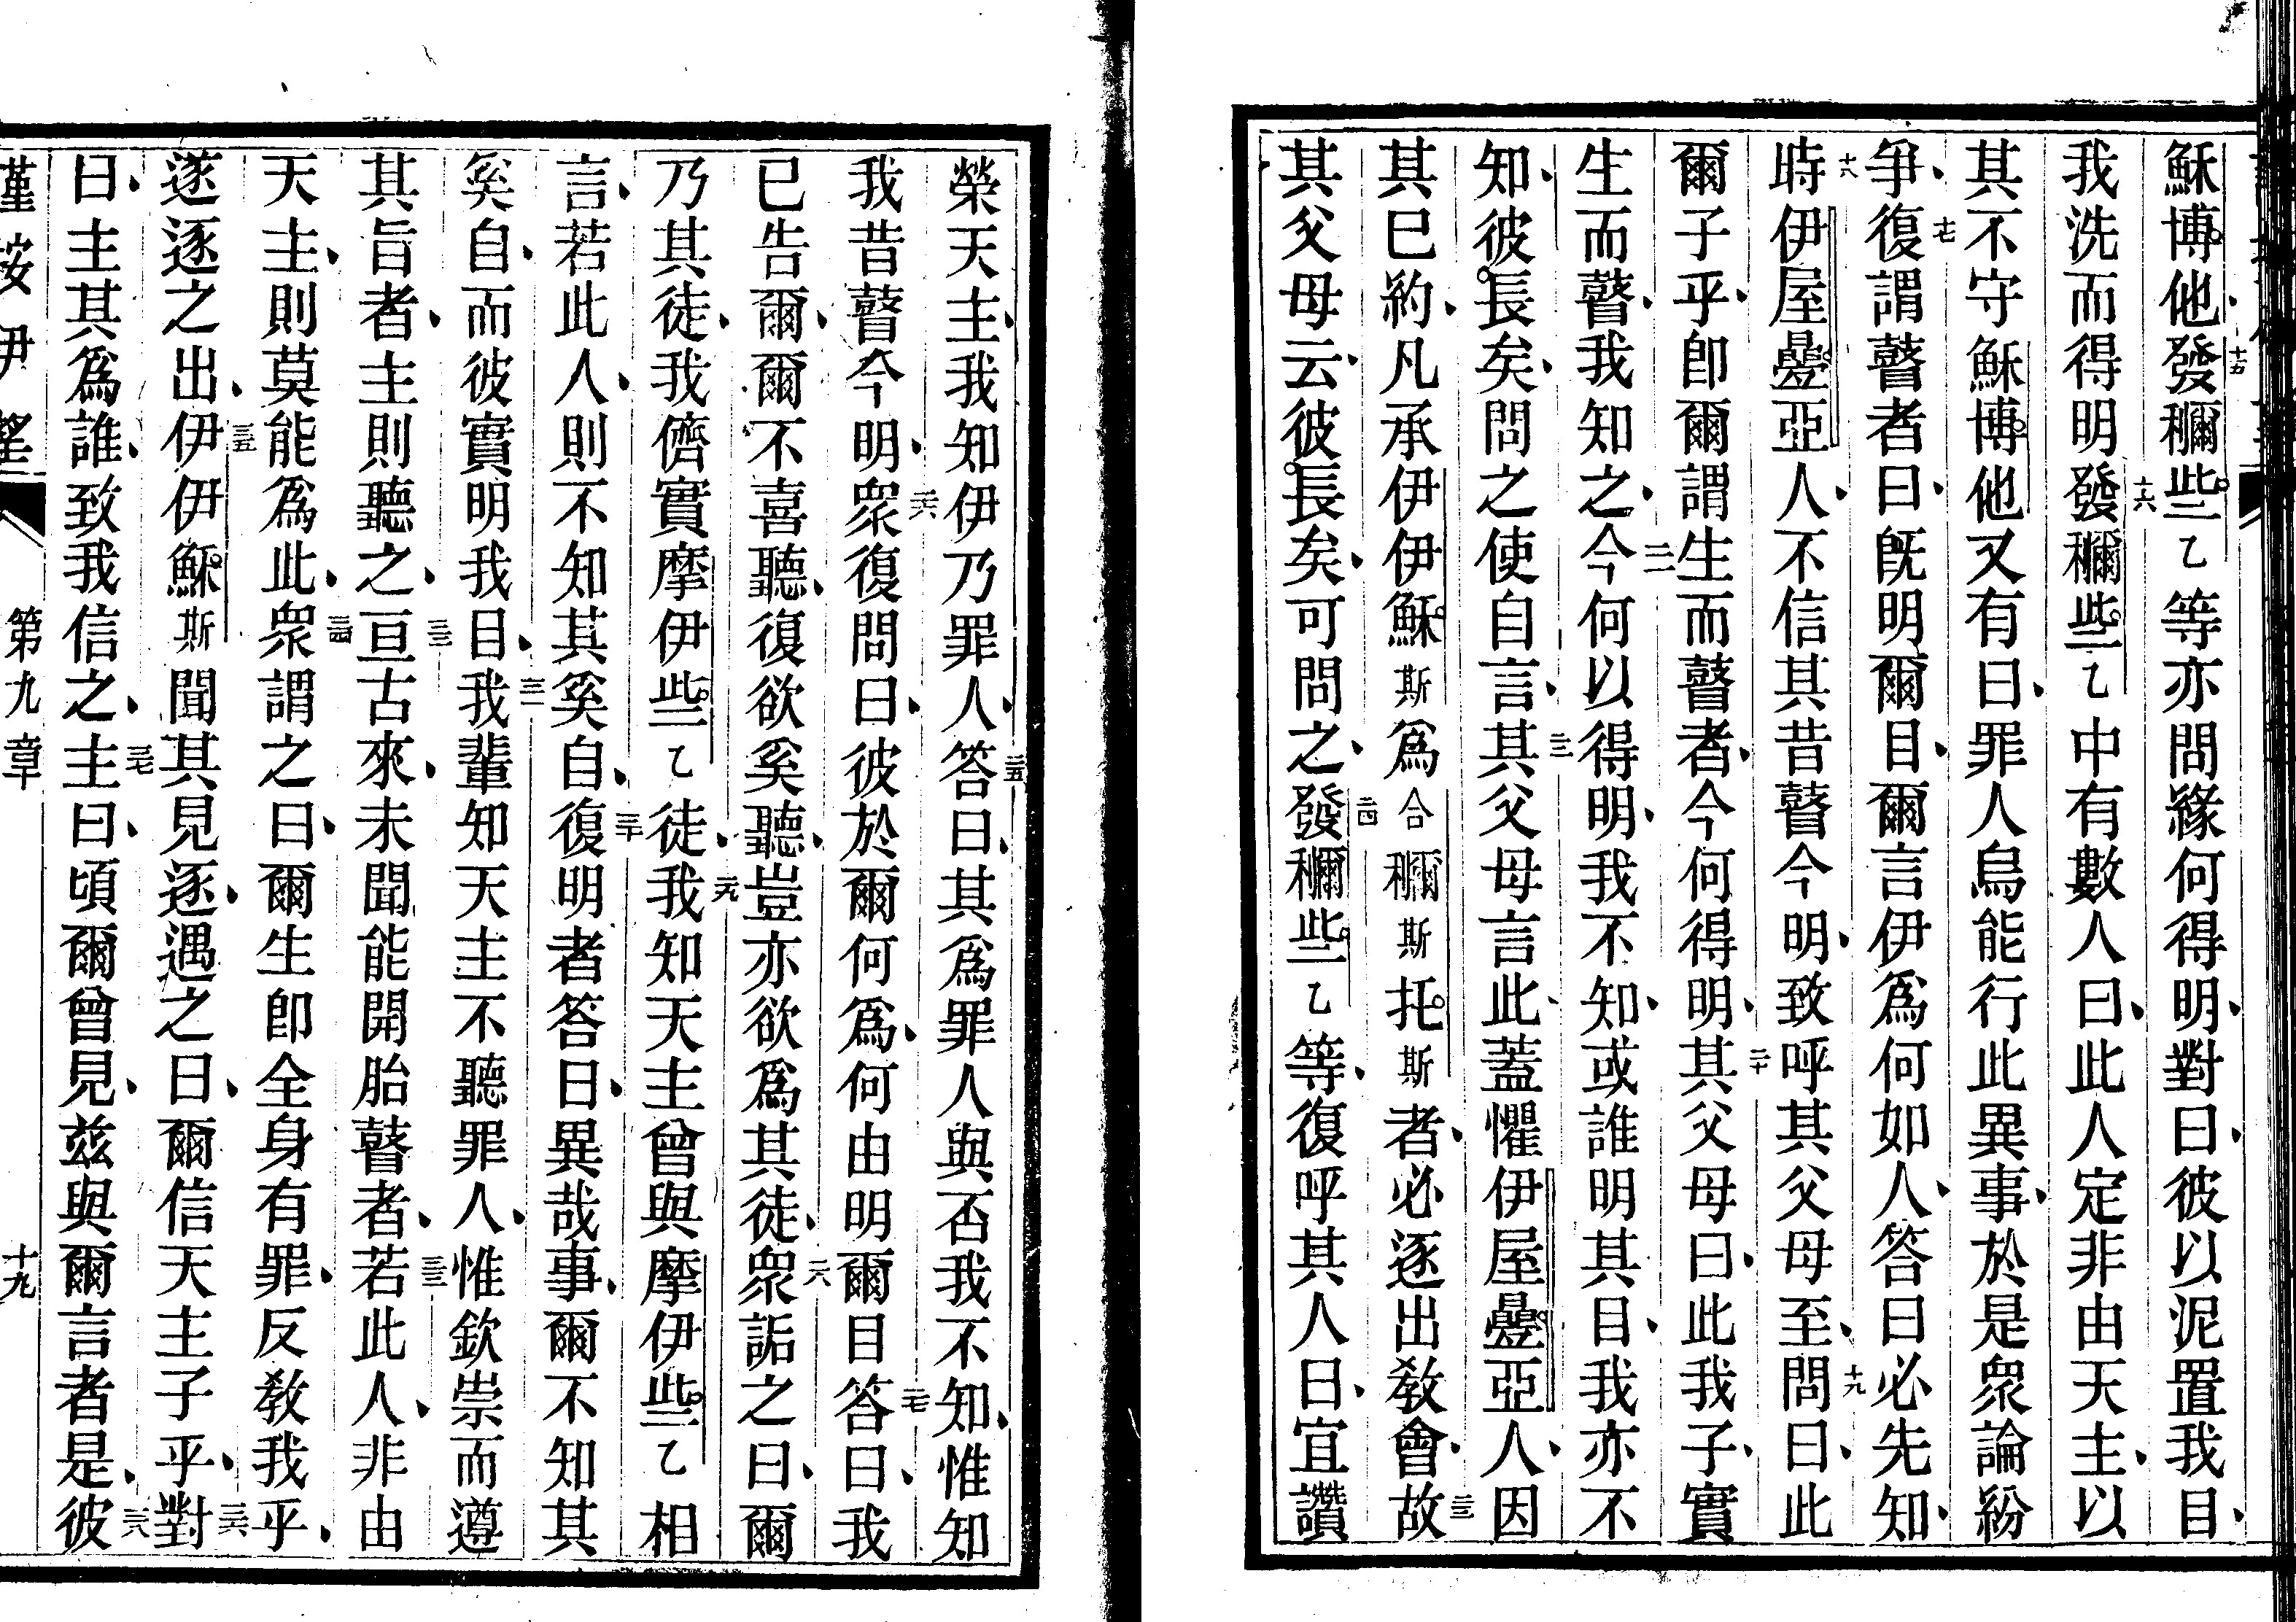 穌博他、發穪些乙等亦問緣何得明、對曰、彼以泥置我目、
我洗而得明發穪些乙中有數人曰、此人定非由天主、以
其不守穌博他又有曰、罪人烏能行此異事、於是眾論紛
爭、復謂瞽者曰、旣明爾目、爾言伊爲何如人、答曰必先知、
時伊屋疊亞人、不信其昔瞽今明、致呼其父母至、問曰、此
爾子乎、卽爾謂生而瞽者、今何得明、其父母曰、此我子、實
生而瞽、我知之、今何以得明、我不知、或誰明其目、我亦不
知、彼長矣、問之使自言、其父母言此、蓋懼伊屋疊亞人、因
其巳約、凡承伊伊穌斯爲合穪斯托斯者、必逐出敎會、故
其父母云、彼長矣、可問之、發穪些乙等、復呼其人曰、宜讚
榮天主、我知伊乃罪人、答曰、其爲罪人與否我不知、惟知
我昔瞽今明、眾復問曰、彼於爾何爲、何由明爾目答曰、我
已告爾、爾不喜聽、復欲奚聽、豈亦欲爲其徒、眾詬之曰、爾
乃其徒、我儕實摩伊些乙徒、我知天主曾與摩伊些乙相
言、若此人、則不知其奚自、復明者答曰、異哉事、爾不知其
奚自、而彼實明我目、我輩知天主不聽罪人、惟欽崇而遵
其旨者、主則聽之、亘古來、未聞能開胎瞽者、若此人、非由
天主、則莫能爲此、眾謂之曰、爾生卽全身有罪、反敎我乎、
遂逐之出、伊伊穌斯聞其見逐、遇之曰、爾信天主子乎、對
曰、主其爲誰、致我信之、主曰、頃爾曾見、茲與爾言者是、彼
謹按伊望
第九章
十九
十五
十六
十七
十八
十九
二十
二一
二二
二三
二四
二五
二六
二七
二八
二九
三十
三一
三二
三三
三四
三五
三六
三七
三八